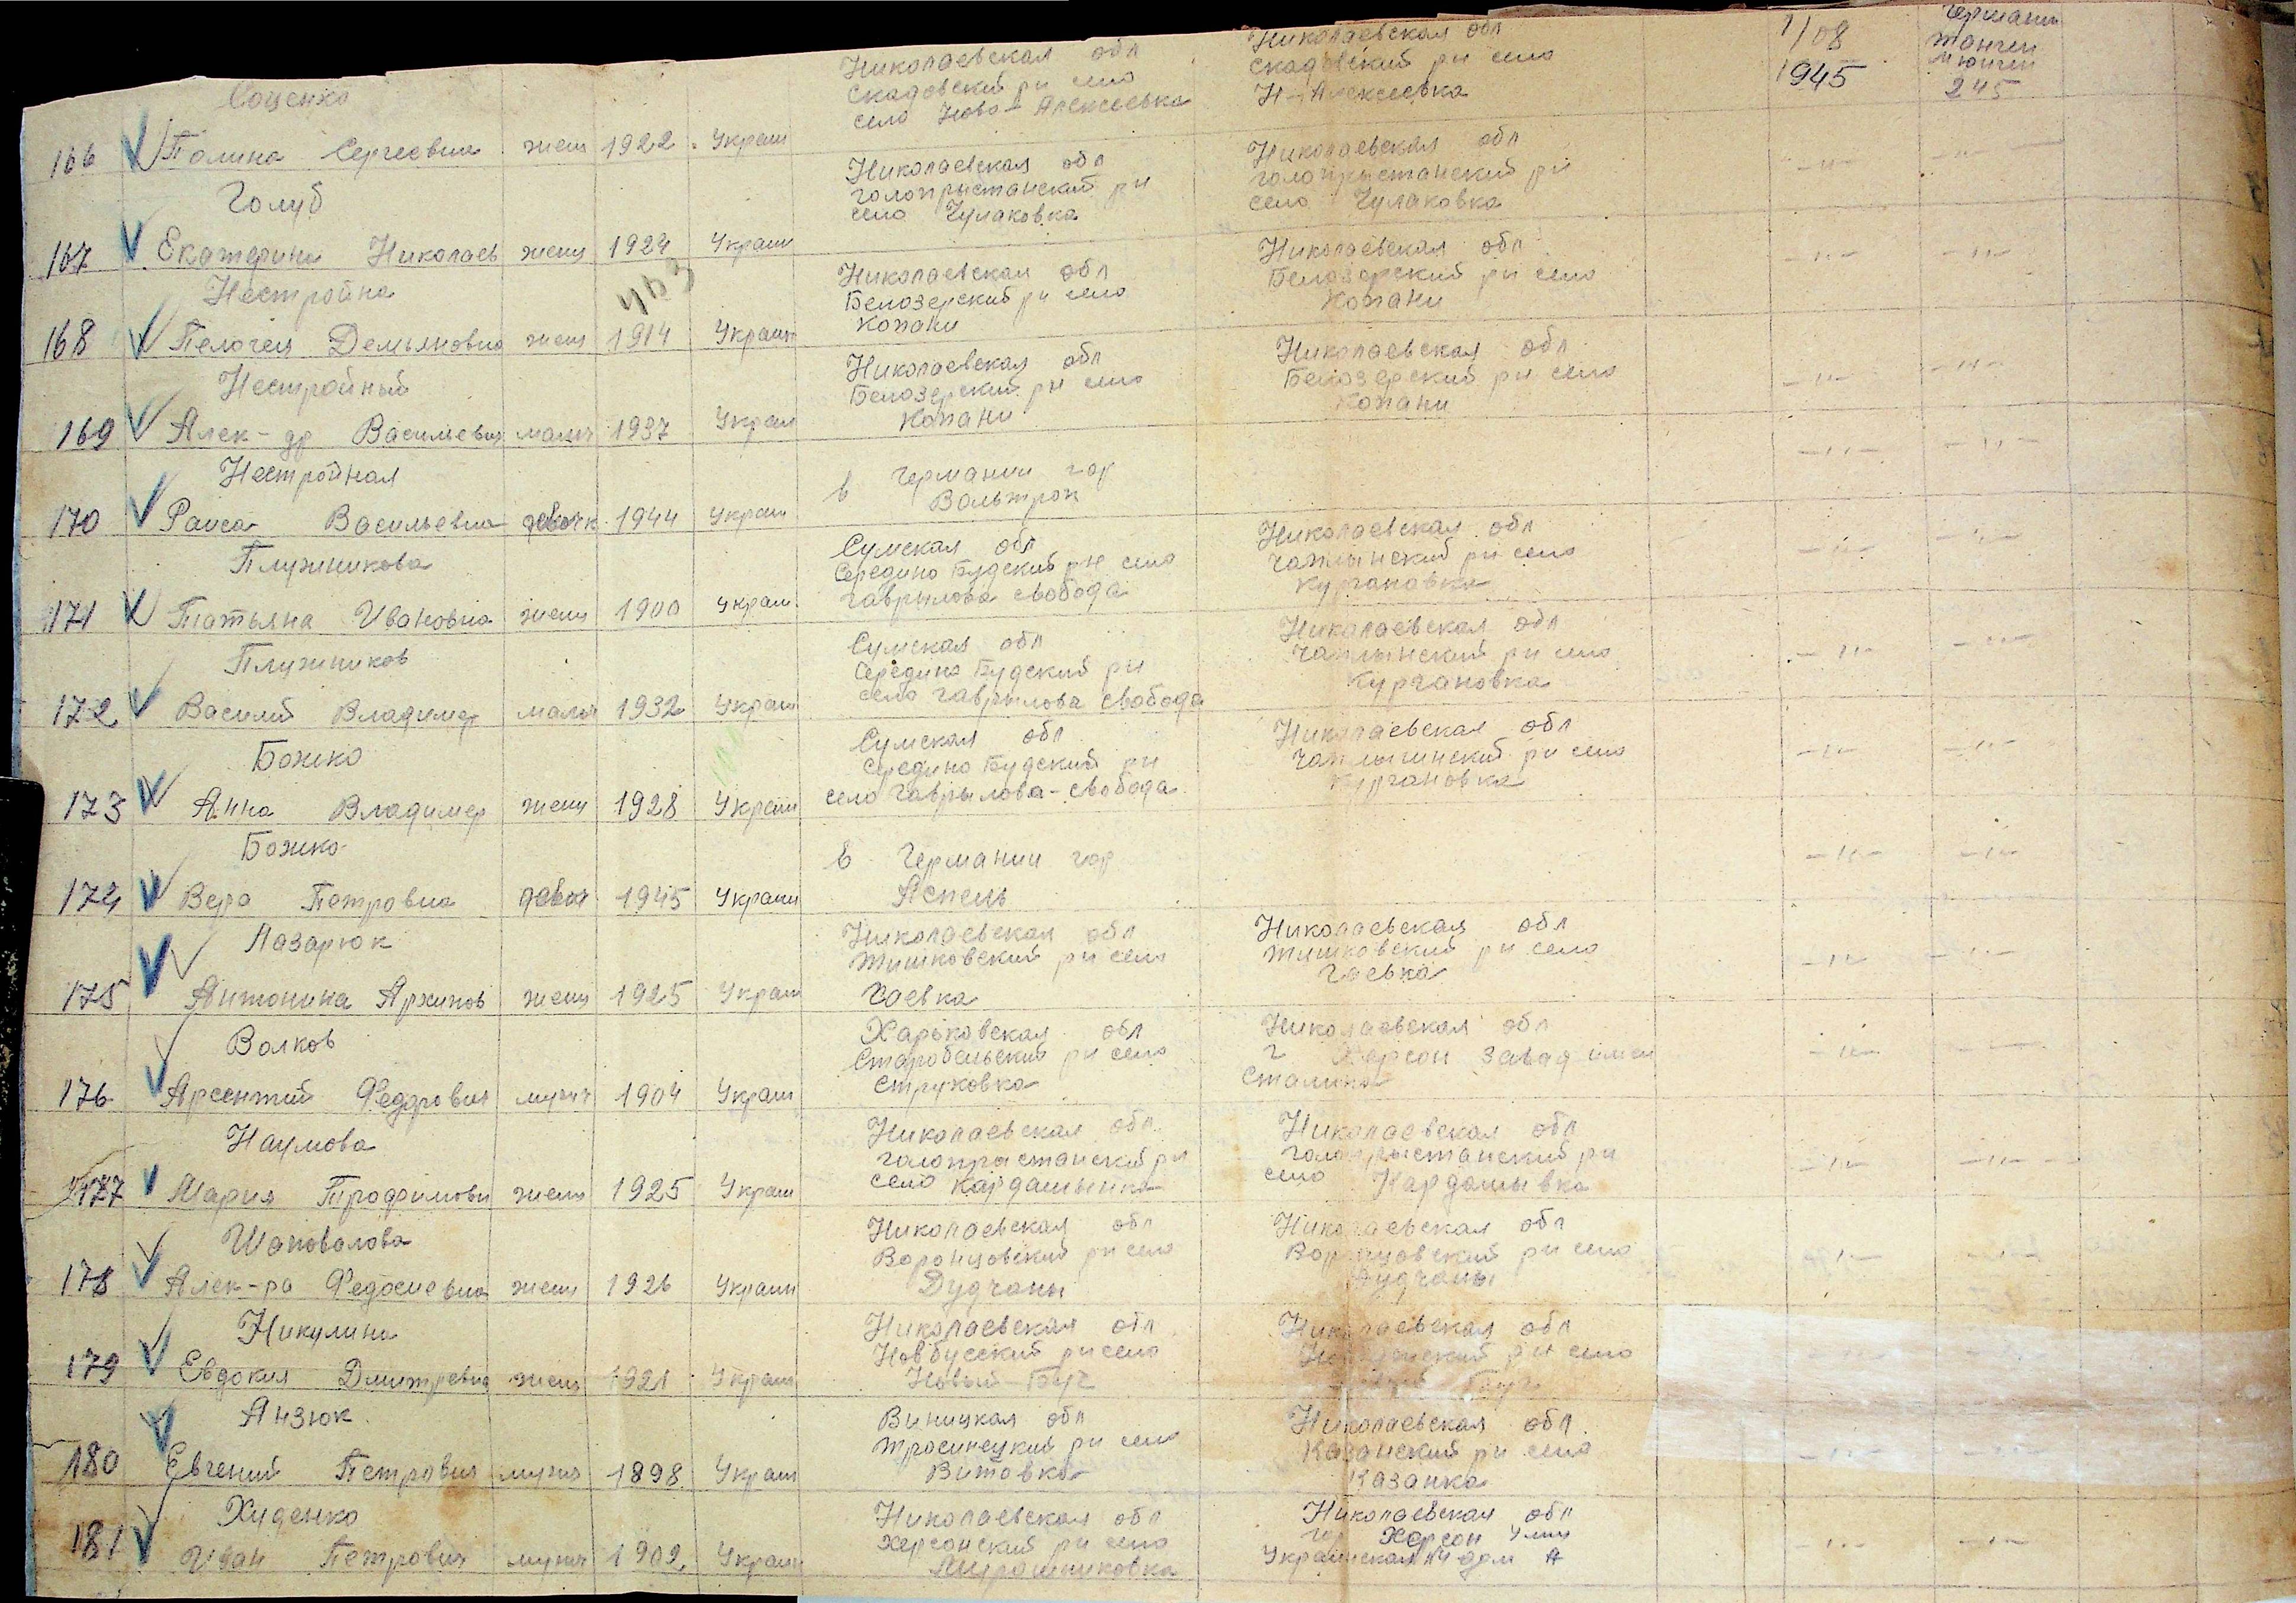 Соценко
166 Полина Сергеевна жен 1922 Украин
Николаевская обл
Скадовский рн село
село Ново-Алексеевка
Николаевская обл
Скадовский рн село
Н-Алексеевка
1/08
1945
Германи
Мюнхен
245
Голуб
167 Екатерина Николаев женщ 1924 Украин
Николаевская обл
голопрыстанский рн
село Чулаковка
Николаевская обл
голопрыстанский рн
село Чулаковка
-"- -"-
463
Нестройна
168 Пелагея Демьяновна женщ 1914 Украин
Николаевская обл
Белозерский рн село
Копани
Николаевская обл
Белозерский рн село
Копани
-"- -"-
Нестройный
169 Алек-др Васильевич мальч 1937 Украин
Николаевская обл
Белозерский рн село
Копани
Николаевская обл
Белозерский рн село
Копани
-"- -"-
Нестройная
170 Раиса Васильевна девочк 1944 Украин
в Германии гор
Вольтроп
-"- -"-
Плужникова
171 Татьяна Ивановна женщ 1900 Украин
Сумская обл
Середино Будский рн село
гаврылова свобода
Николаевская обл
Чаплынский рн село
Кургановка
-"- -"-
Плужников
172 Василий Владимер мальч 1932 Украин
Сумская обл
Середино Будский рн
село гаврылова свобода
Николаевская обл
Чаплынский рн село
Кургановка
-"- -"-
Божко
173 Анна Владимер женщ 1928 Украин
Сумская обл
Середино Будский рн
село гаврылова-свобода
Николаевская обл
Чаплынский рн село
Кургановка
-"- -"-
Божко
174 Вера Петровна девоч 1945 Украин
в Германии гор
Аспель
-"- -"-
Лазарюк
175 Антонина Архипов женщ 1925 Украин
Николаевская обл
Тишковский рн село
Гаевка
Николаевская обл
Тишковский рн село
Гаевка
-"- -"-
Волков
176 Арсентий Федорович мужч 1904 Украин
Харьковская обл
Старобельский рн село
Струковка
Николаевская обл
г Херсон завод имен
Сталина
-"- -"-
Наумова
177 Мария Трофимовн женщ 1925 Украин
Николаевская обл
голопрыстанский рн
село Кардашынка
Николаевская обл
голопрыстанский рн
село Кардашывка
-"- -"-
Шаповалова
178 Алек-ра Федосиевна женщ 1926 Украин
Николаевская обл
Воронцовский рн село
Дудчаны
Николаевская обл
Воронцовский рн село
Дудчаны
-"- -"-
Никулина
179 Евдокия Дмитревна женщ 1921 Украин
Николаевская обл
Новбугский рн село
Новый-Буг
Николаевская обл
рн село
Буг
Анзюк
180 Евгений Петрович мужч 1898 Украин
Виницкая обл
Тросинецкий рн село
Витовка
Николаевская обл
Казанский рн село
Казанка
-"- -"-
Хиденко
181 Иван Петрович мужч 1909 Украин
Николаевская обл
Херсонский рн село
Мирошниковка
Николаевская обл
гор Херсон Улиц
Украинская №4 дом А
-"- -"-